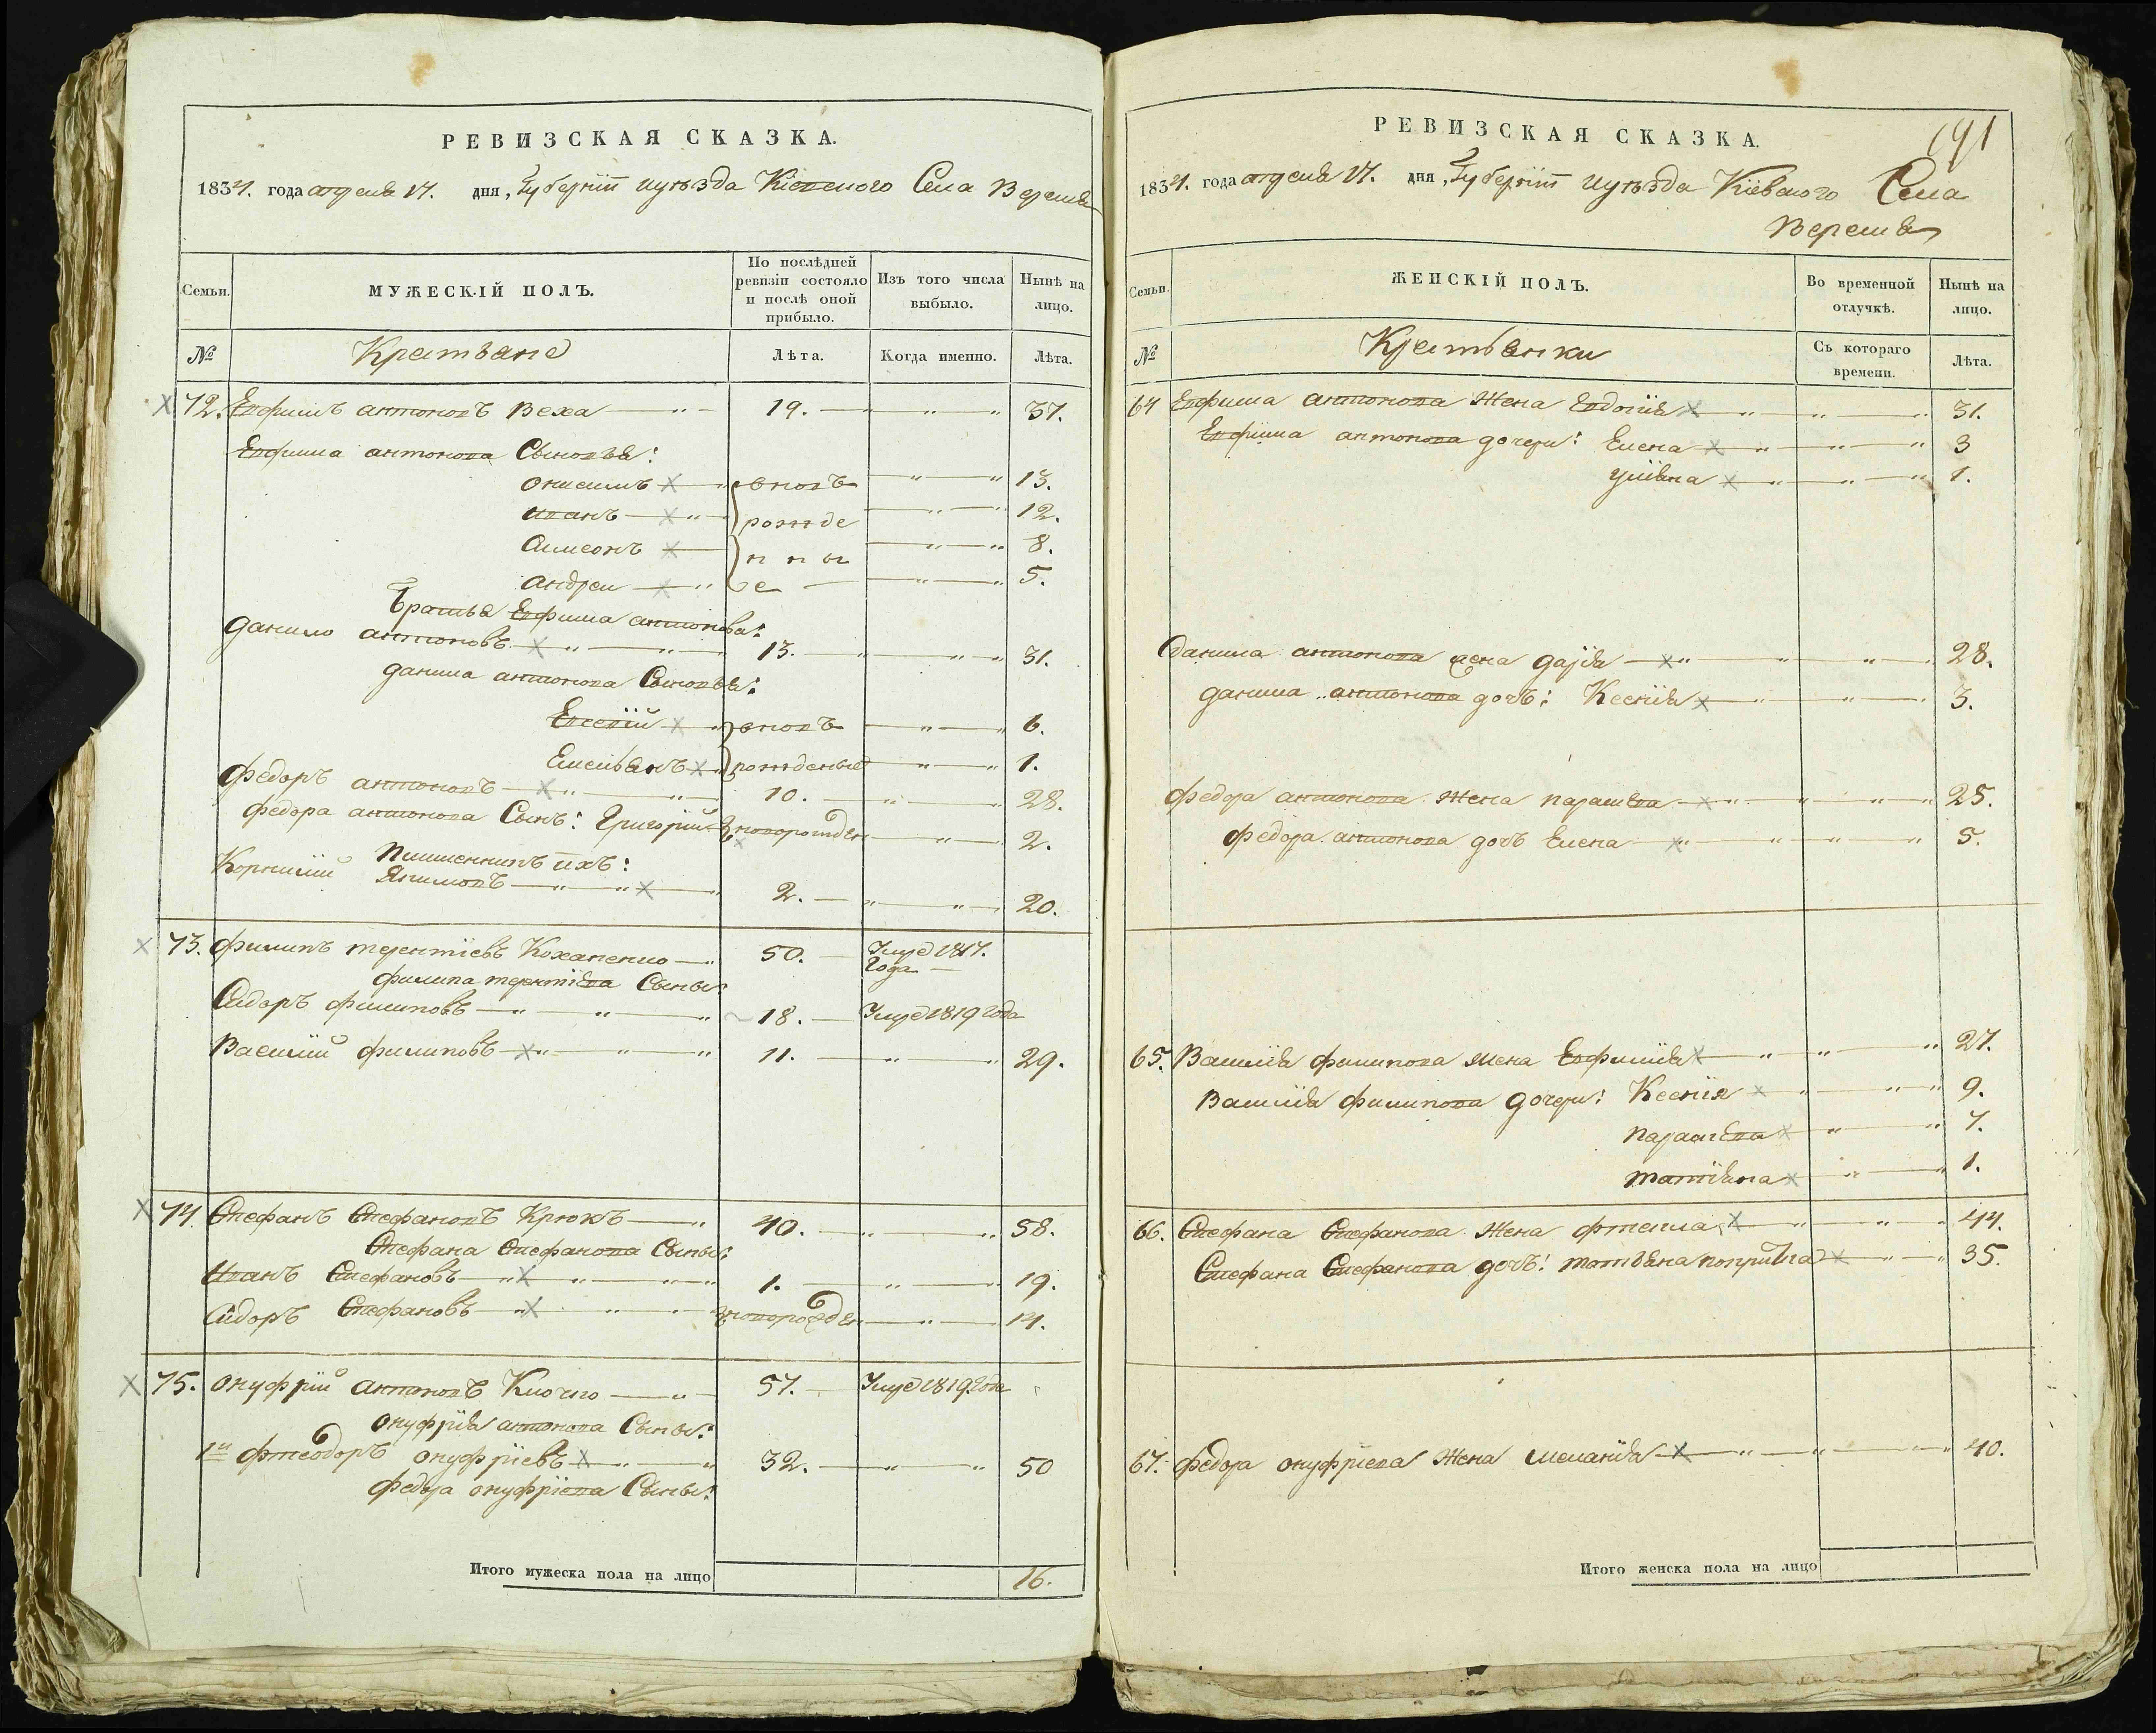 РЕВИЗСКАЯ СКАЗКА.
1834. года апреля 17. дня, Губерніи и уезда Кіевского Села Веремья
Семьи.
МУЖЕСКІЙ ПОЛЪ.
По послѣдней ревизіи состояло и послѣ оной прибыло.
Изъ того числа выбыло.
Нынѣ на лицо.
№
Крестьяне
Лѣта.
Когда именно.
Лѣта.
72. Евфимъ антоновъ Веха 19. 37.
Евфима антонова Сыновья:
онисимъ вновъ 13.
иванъ рожде 12.
Симеонъ н н ы 8.
андреи е 5.
Братья Евфима антонова:
данило антоновъ 13. 31.
данила антонова Сыновья:
Евсевій вновъ 6.
Емельянъ рожденые 1.
федоръ антоновъ 10. 28.
федора антонова Сынъ: Григорій новорожден 2.
Племенникъ ихъ:
Корнилій Якимовъ 2. 20.
73. филипъ терентіевъ Коханенко 50. Умре 1817. Года
филипа терентіева Сыны:
Сидоръ филиповъ 18. Умре 1819 Года
Василій филиповъ 11. 29.
74. Стефанъ Стефановъ Крюкъ 40. 58.
Стефана Стефанова Сыны:
Иванъ Стефановъ 1. 19.
Сидоръ Стефановъ новорожден 14.
75. онуфрій антоновъ Клочко 57. Умре 1819 Года
онуфрія антонова Сыны:
1й фтеодоръ онуфріевъ 32. 50
федора онуфріева Сыны:
Итого мужеска пола на лицо 16.
191
РЕВИЗСКАЯ СКАЗКА.
1834. года апреля 17. дня, Губерніи и уезда Кіевского Села
Веремья
Семьи.
ЖЕНСКІЙ ПОЛЪ.
Во временной отлучкѣ.
Нынѣ на лицо.
№
Крестьянки
Съ котораго времени.
Лѣта.
64 Евфима антонова Жена Евдокія 31.
Евфима антонова дочери: Елена 3
уліяна 1.
данила антонова жена дарья 28.
данила антонова дочь: Ксенія 3.
федора антонова Жена параскева 25.
федора антонова дочь Елена 5.
65. Василія филипова жена Евфимія 27.
Василія филипова дочери: Ксенія 9.
параскева 7.
татіяна 1.
66. Стефана Стефанова Жена фтекла 44.
Стефана Стефанова дочь: татьяна покритка 35.
67. федора онуфріева Жена меланія 40.
Итого женска пола на лицо